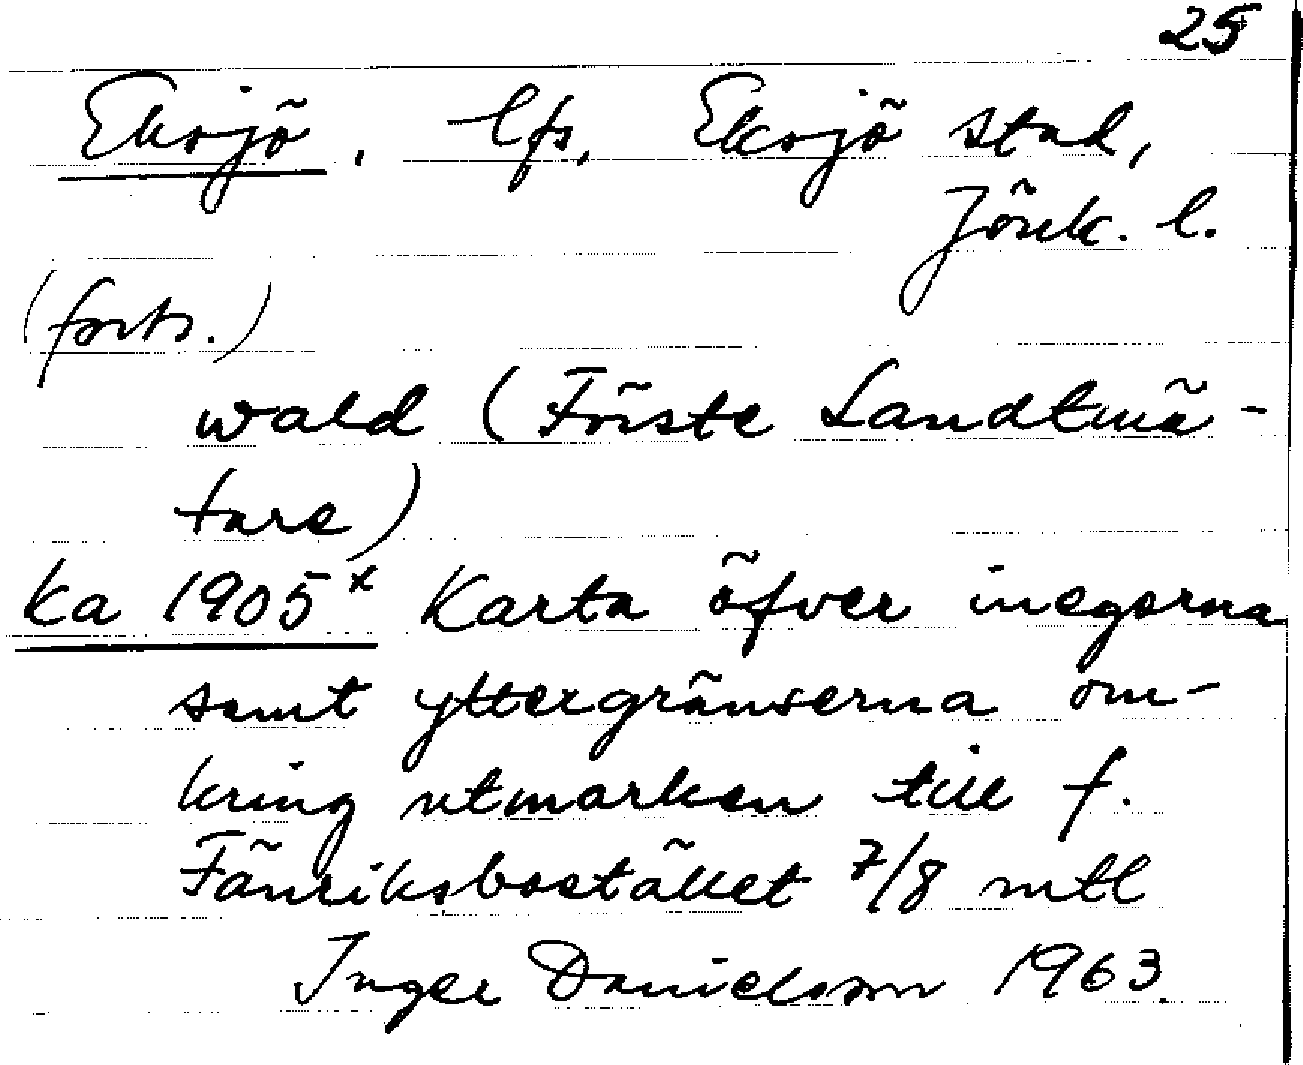 25
Eksjö, lfs, Eksjö stad,
Jönk. l.
(forts.)
wald (Förste Landtmä-
tare)
ka 1905x Karta öfver inegorna
samt yttergränserna om-
kring utmarken till f.
Fänriksbostället 7/8 mtl
Inger Danielsson 1963.